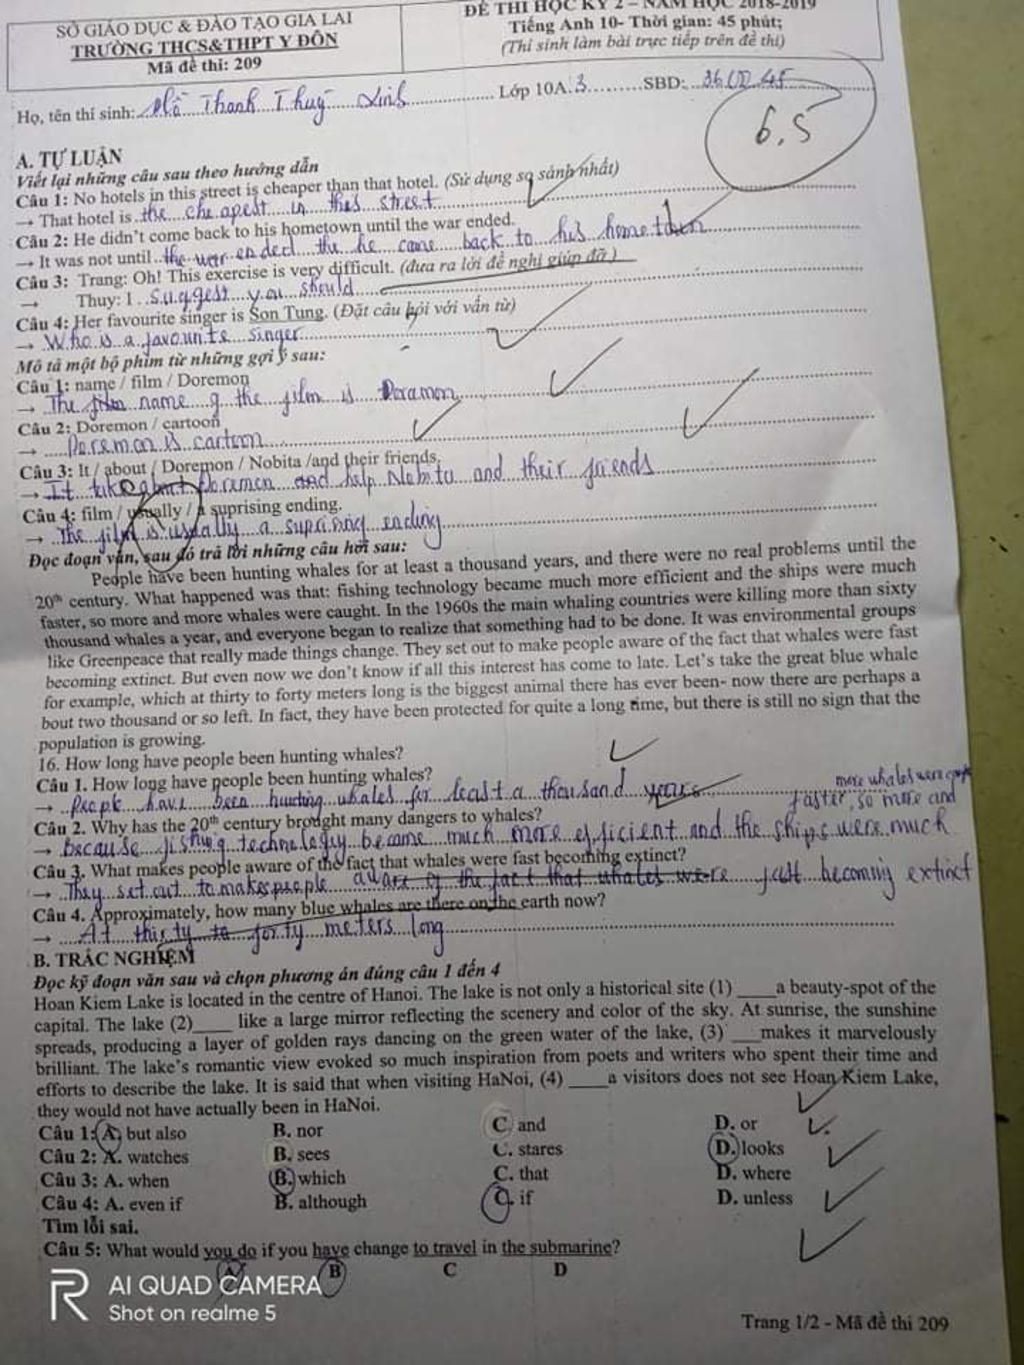 SỞ GIÁO DỤC & ĐÀO TẠO GIA LAI
TRƯỜNG THCS&THPT Y ĐÔN
Mã đề thi: 209
ĐỀ THI HỌC KỲ 2 – NĂM HỌC 2018-2019
Tiếng Anh 10- Thời gian: 45 phút;
(Thí sinh làm bài trực tiếp trên đề thi)
Họ, tên thí sinh: Thanh Thuỳ Linh Lớp 10A.3 SBD:
6,5
A. TỰ LUẬN
Viết lại những câu sau theo hướng dẫn
Câu 1: No hotels in this street is cheaper than that hotel. (Sử dụng so sánh nhất)
→ That hotel is the cheapest in this street
Câu 2: He didn't come back to his hometown until the war ended.
→ It was not until the war ended the he came back to his hometown
Câu 3: Trang: Oh! This exercise is very difficult. (đưa ra lời đề nghị giúp đỡ)
→ Thuy: I suggest you should
Câu 4: Her favourite singer is Son Tung. (Đặt câu hỏi với vấn từ)
→ Who is a favourite singer
Mô tả một bộ phim từ những gợi ý sau:
Câu 1: name / film / Doremon
→ The film name of the film is Doramon
Câu 2: Doremon / cartoon
→ Doremon is cartoon
Câu 3: It / about / Doremon / Nobita /and their friends.
→ It about Doremon and help Nobita and their friends
Câu 4: film / usually / a suprising ending.
→ The film is usually a suprising ending
Đọc đoạn văn, sau đó trả lời những câu hỏi sau:
People have been hunting whales for at least a thousand years, and there were no real problems until the
20th century. What happened was that: fishing technology became much more efficient and the ships were much
faster, so more and more whales were caught. In the 1960s the main whaling countries were killing more than sixty
thousand whales a year, and everyone began to realize that something had to be done. It was environmental groups
like Greenpeace that really made things change. They set out to make people aware of the fact that whales were fast
becoming extinct. But even now we don't know if all this interest has come to late. Let's take the great blue whale
for example, which at thirty to forty meters long is the biggest animal there has ever been- now there are perhaps a
bout two thousand or so left. In fact, they have been protected for quite a long time, but there is still no sign that the
population is growing.
16. How long have people been hunting whales?
Câu 1. How long have people been hunting whales?
→ People have been hunting whales for least a thousand years
more whales were
faster, so more and
Câu 2. Why has the 20th century brought many dangers to whales?
→ Because fishing technology became much more efficient and the ships were much
Câu 3. What makes people aware of the fact that whales were fast becoming extinct?
→ They set out to make people aware of the fact that whales were fast becoming extinct
Câu 4. Approximately, how many blue whales are there on the earth now?
→ At thirty to forty meters long
B. TRẮC NGHIỆM
Đọc kỹ đoạn văn sau và chọn phương án đúng câu 1 đến 4
Hoan Kiem Lake is located in the centre of Hanoi. The lake is not only a historical site (1) ____a beauty-spot of the
capital. The lake (2)____ like a large mirror reflecting the scenery and color of the sky. At sunrise, the sunshine
spreads, producing a layer of golden rays dancing on the green water of the lake, (3) ___makes it marvelously
brilliant. The lake's romantic view evoked so much inspiration from poets and writers who spent their time and
efforts to describe the lake. It is said that when visiting HaNoi, (4) ____a visitors does not see Hoan Kiem Lake,
they would not have actually been in HaNoi.
Câu 1: A. but also B. nor C. and D. or
Câu 2: A. watches B. sees C. stares D. looks
Câu 3: A. when B. which C. that D. where
Câu 4: A. even if B. although C. if D. unless
Tìm lỗi sai.
Câu 5: What would you do if you have change to travel in the submarine?
A B C D
R AI QUAD CAMERA
Shot on realme 5
Trang 1/2 - Mã đề thi 209